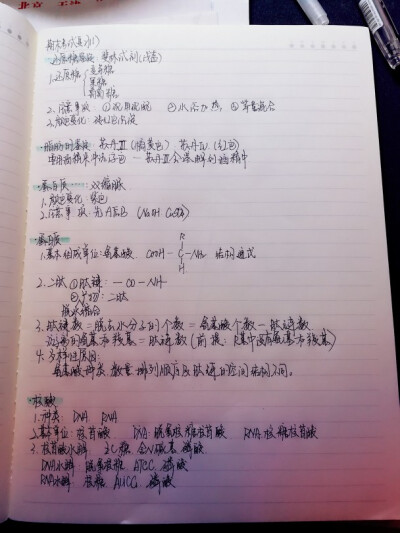 北京
期末考试复习(1)
还原糖鉴定 斐林试剂
1.还原糖 麦芽糖
果糖
葡萄糖
2.注意事项 ①现用现配 ②水浴加热 ③等量混合
3.颜色变化 砖红色沉淀
脂肪的鉴定 苏丹Ⅲ(橘黄色) 苏丹Ⅳ(红色)
蛋白质 双缩脲
1.颜色变化 紫色
2.注意事项 先A后B (NaOH CuSO4)
蛋白质
1.基本组成单位:氨基酸 COOH-C-NH2 结构通式
R
H
H
2.二肽 ①肽键 -CO-NH-
②产物:二肽
脱水缩合
3.肽键数=脱去水分子的个数=氨基酸个数-肽链数
游离的氨基或羧基=肽链数(前提:R基中没有氨基和羧基)
4.多样性原因
氨基酸种类 数量 排列顺序及肽链的空间结构不同。
核酸
1.种类 DNA RNA
2.基本单位:核苷酸 DNA:脱氧核糖核苷酸 RNA:核糖核苷酸
3.核苷酸水解 五C糖 含N碱基 磷酸
DNA水解 脱氧核糖 ATCG 磷酸
RNA水解 核糖 AUCG 磷酸